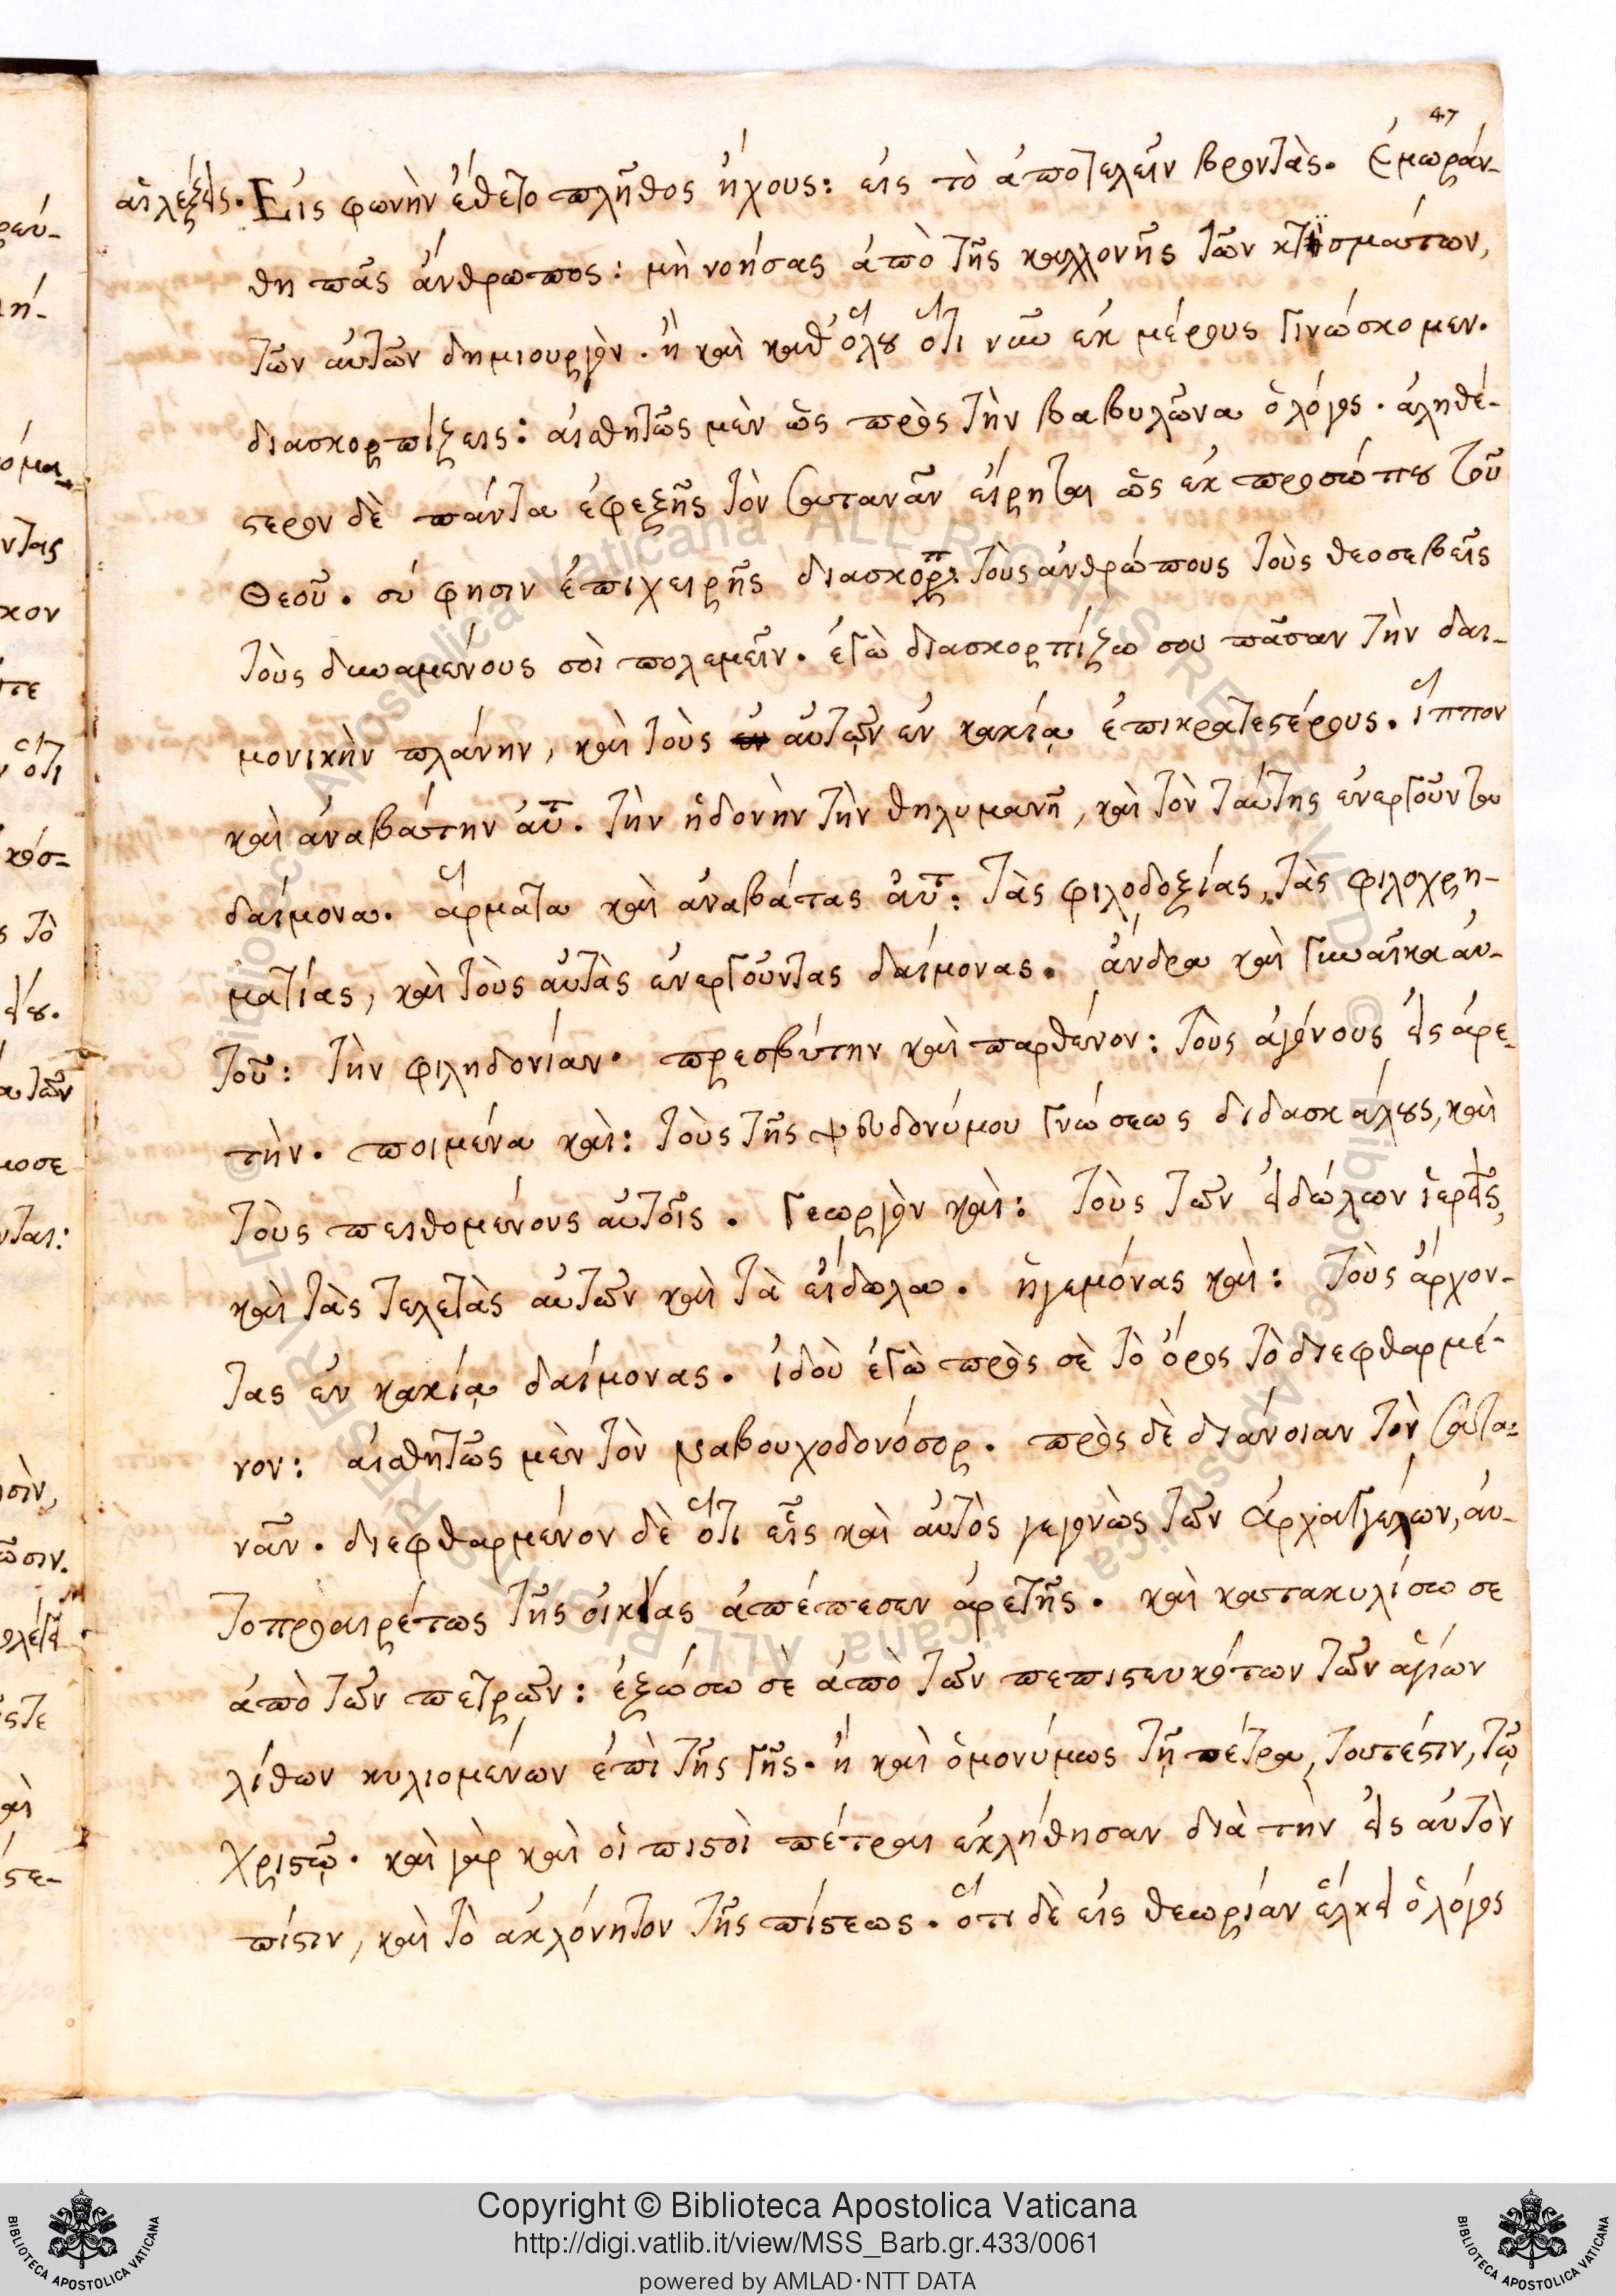 47
αἱ λέξεις. Εἰς φωνὴν ἔθετο πλῆθος ἤχους: εἰς τὸ ἀποτελεῖν βροντὰς. ἐμωράν-
θη πᾶς ἄνθρωπος: μὴ νοήσας ἀπὸ τῆς καλλονῆς τῶν κτισμάτων,
τῶν αὐτῶν δημιουργὸν. ἢ καὶ καθ' ὅλου ὅτι νῦν ἐκ μέρους γινώσκομεν.
διασκορπίζεις: αἰσθητῶς μὲν ὡς πρὸς τὴν βαβυλῶνα ὁ λόγος. ἀληθέ-
στερον δὲ πάντα ἐφεξῆς τὸν σατανᾶν εἴρηται ὡς ἐκ προσώπου τοῦ
Θεοῦ. σύ φησιν ἐπιχειρῆς διασκορπ: τοὺς ἀνθρώπους τοὺς θεοσεβεῖς
τοὺς δυναμένους σοὶ πολεμεῖν. ἐγὼ διασκορπίζω σου πᾶσαν τὴν δαι-
μονικὴν πλάνην, καὶ τοὺς αὐτῶν ἐν κακίᾳ ἐπικρατεστέρους. ἵππον
καὶ ἀναβάτην αὐτ. τὴν ἡδονὴν τὴν θηλυμανῆ, καὶ τὸν ταύτης ἐνεργοῦντα
δαίμονα. ἅρματα καὶ ἀναβάτας αὐτ: τὰς φιλοδοξίας, τὰς φιλοχρη-
ματίας, καὶ τοὺς αὐτὰς ἐνεργοῦντας δαίμονας. ἄνδρα καὶ γυναῖκα ἀν-
τοῦ: τὴν φιληδονίαν. πρεσβύτην καὶ παρθένον: τοὺς ἀγόνους εἰς ἀρε-
τὴν. ποιμένα καὶ: τοὺς τῆς ψευδονύμου γνώσεως διδασκάλους, καὶ
τοὺς πειθομένους αὐτοῖς. γεωργὸν καὶ: τοὺς τῶν εἰδώλων ἱερεῖς,
καὶ τὰς τελετὰς αὐτῶν καὶ τὰ εἴδωλα. ἡγεμόνας καὶ: τοὺς ἄρχον-
τας ἐν κακίᾳ δαίμονας. ἰδοὺ ἐγὼ πρὸς σὲ τὸ ὄρος τὸ διεφθαρμέ-
νον: αἰσθητῶς μὲν τὸν ναβουχοδονόσορ. πρὸς δὲ διάνοιαν τὸν σατα-
νᾶν. διεφθαρμένον δὲ ὅτι εἷς καὶ αὐτὸς γεγονὼς τῶν ἀρχαγγέλων, αὐ-
τοπροαιρέτως τῆς οἰκείας ἀπέπεσεν ἀρετῆς. καὶ κατακυλίσω σε
ἀπὸ τῶν πετρῶν: ἐξώσω σὲ ἀπὸ τῶν πεπιστευκότων τῶν ἁγίων
λίθων κυλιομένων ἐπὶ τῆς γῆς. ἢ καὶ ὁμονύμως τῇ πέτρᾳ, τουτέστιν, τῷ
Χριστῷ. καὶ γὰρ καὶ οἱ πιστοὶ πέτραι ἐκλήθησαν διὰ τὴν εἰς αὐτὸν
πίστιν, καὶ τὸ ἀκλόνητον τῆς πίστεως. ὅτι δὲ εἰς θεωρίαν ἕλκει ὁ λόγος
Copyright © Biblioteca Apostolica Vaticana
http://digi.vatlib.it/view/MSS_Barb.gr.433/0061
powered by AMLAD·NTT DATA